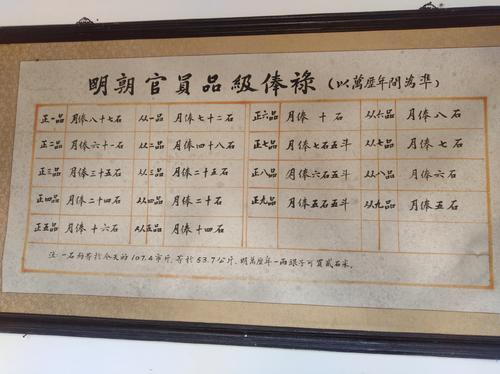 明朝官員品級俸祿（以萬歷年間為準）
正一品 月俸八十七石 从一品 月俸七十二石 正六品 月俸 十石 从六品 月俸 八石
正二品 月俸六十一石 从二品 月俸四十八石 正七品 月俸七石五斗 从七品 月俸 七石
正三品 月俸三十五石 从三品 月俸二十五石 正八品 月俸六石五斗 从八品 月俸 六石
正四品 月俸二十四石 从四品 月俸二十石 正九品 月俸五石五斗 从九品 月俸 五石
正五品 月俸 十六石 从五品 月俸 十四石
注:一石約等於今天的107.4市斤,等於53.7公斤,明萬歷年一兩銀子可買貳石米。